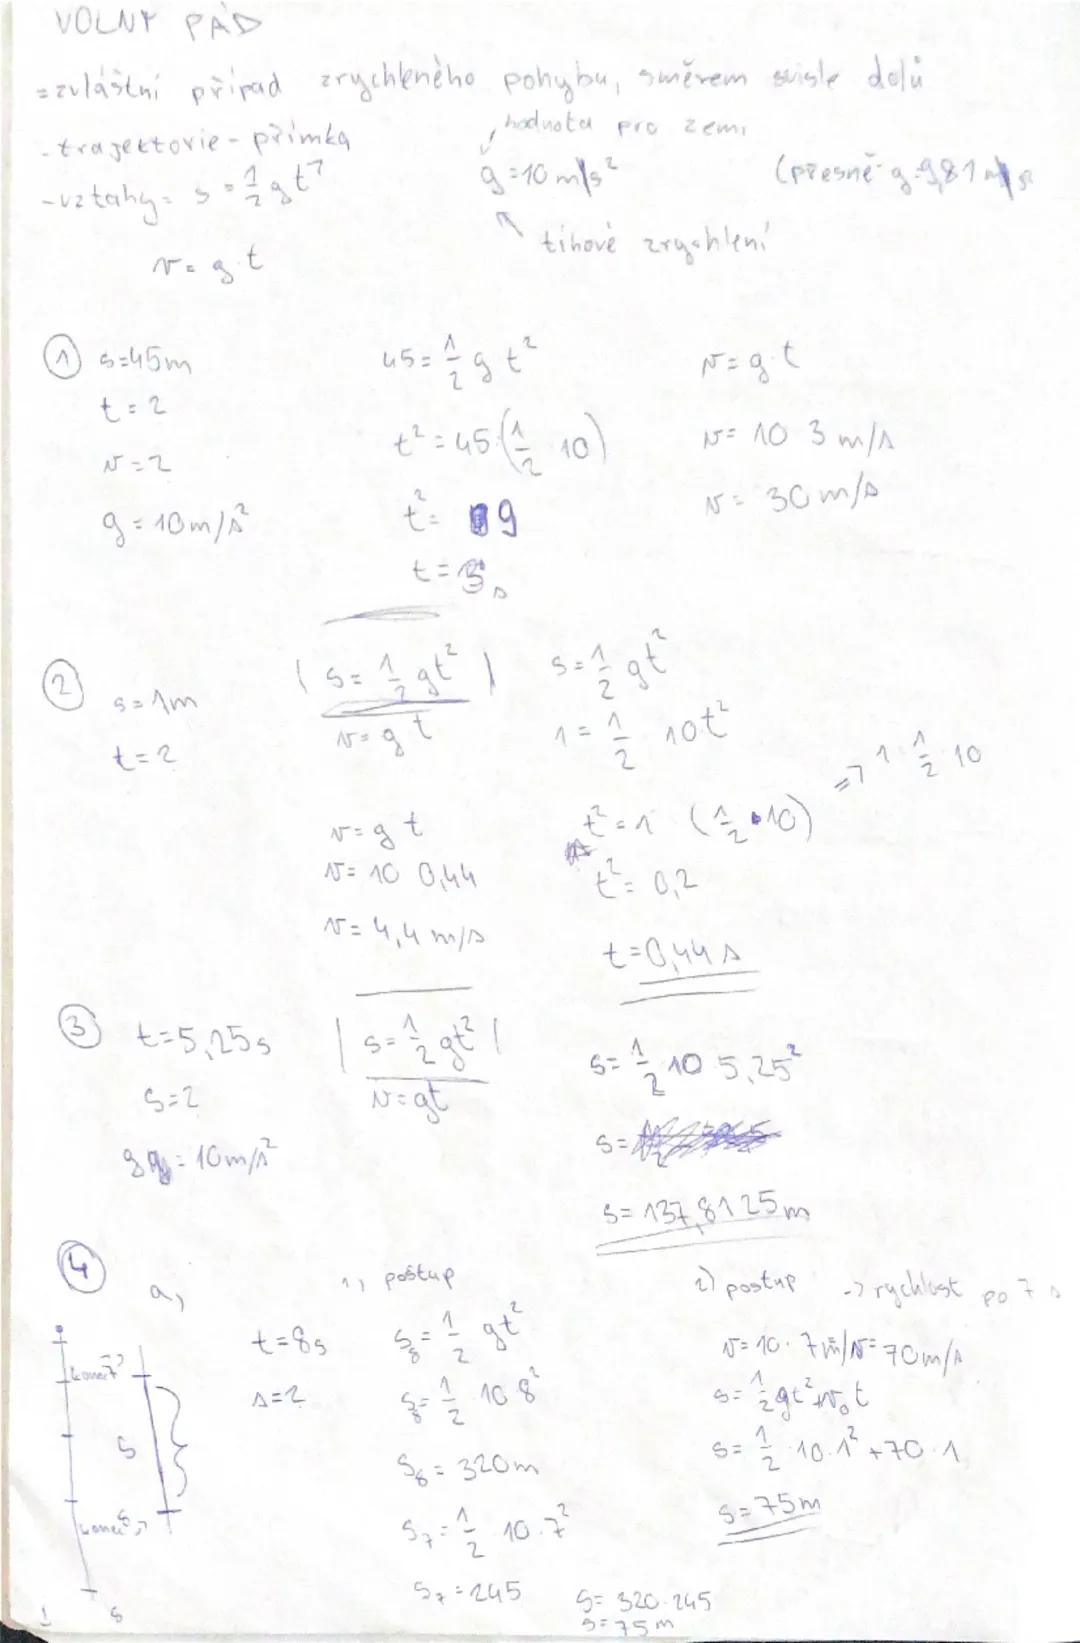 VOLNÝ PÁD
= zvláštní případ zrychleného pohybu, směrem svisle dolů
- trajektorie - přímka
hodnota pro zemi
- vztahy = s = 1/2 g t²
g = 10 m/s²
(přesně g = 9,81 m/s²
tíhové zrychlení
v = g t
① s = 45 m
t = ?
v = ?
g = 10 m/s²
45 = 1/2 g t²
t² = 45 : (1/2 10)
t² = 9
t = 3 s
v = g · t
v = 10 3 m/s
v = 30 m/s
② s = 1 m
t = ?
| s = 1/2 gt² |
v = g t
v = g t
v = 10 0,44
v = 4,4 m/s
s = 1/2 gt²
1 = 1/2 10t²
t² = 1 (1/2 · 10)
=> 1 · 1/2 · 10
t² = 0,2
t = 0,44 s
③ t = 5,25 s
s = ?
g = 10 m/s²
| s = 1/2 gt² |
v = gt
s = 1/2 10 5,25²
s =
s = 137,8125 m
④
a,
konec 7
s
konec 8
8
t = 8s
s = ?
1, postup
s₈ = 1/2 gt²
s₈ = 1/2 10 8²
s₈ = 320 m
s₇ = 1/2 10 · 7²
s₇ = 245
s = 320 - 245
s = 75 m
2) postup -> rychlost po 7 s
v = 10 · 7 m/s v = 70 m/s
s = 1/2 gt² + v₀ t
s = 1/2 · 10 · 1² + 70 · 1
s = 75 m